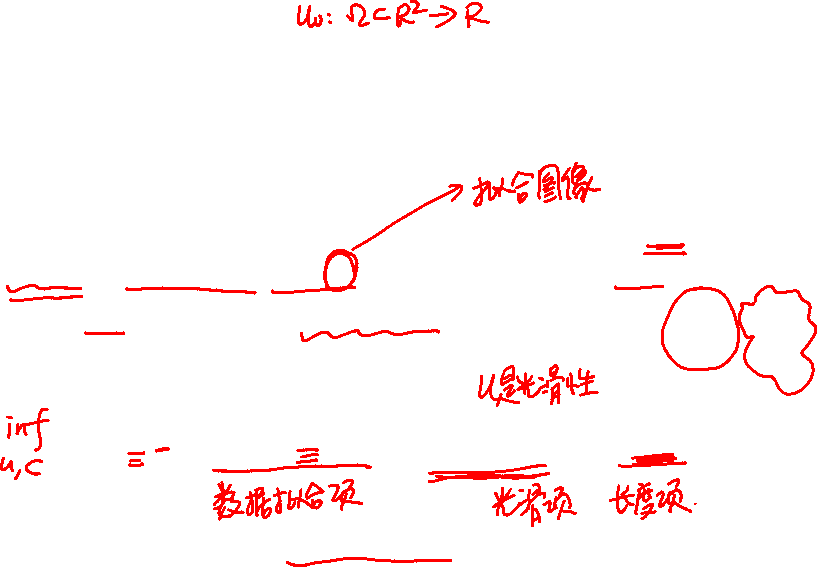 u₀: Ω⊂R²→R
拟合图像
u是光滑性
inf
u,c
数据拟合项 光滑项 长度项.